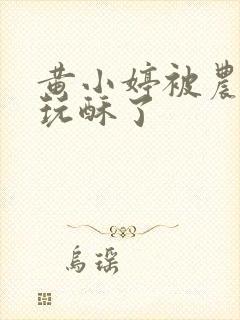 黄小婷被農
玩酥了
烏瑶